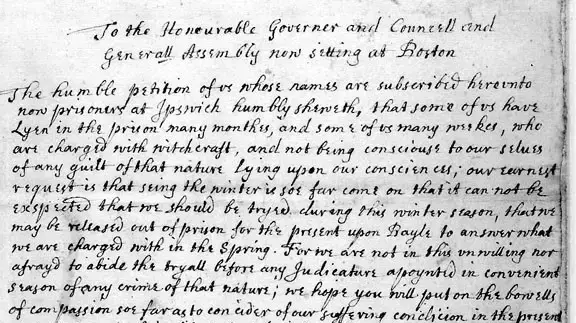 To the Honourable Governer and Councell and
Generall Assembly now setting at Boston
The humble petition of vs whose names are subscribed herevnto
now prisoners at Ipswich humbly sheweth, that some of vs have
Lyen in the prison many monthes, and some of vs many weekes, who
are charged with witchcraft, and not being consciouse to our selues
of any guilt of that nature lying upon our consciences; our earnest
request is that seing the winter is soe far come on that it can not be
exspected that we should be tryed during this winter season, that we
may be released out of prison for the present upon Bayle to answer what
we are charged with in the Spring. For we are not in this vnwilling nor
afrayd to abide the tryall before any Judicature apoynted in convenient
season of any crime of that nature; we hope you will put on the bowells
of compassion soe far as to concider of our suffering condicion in the present